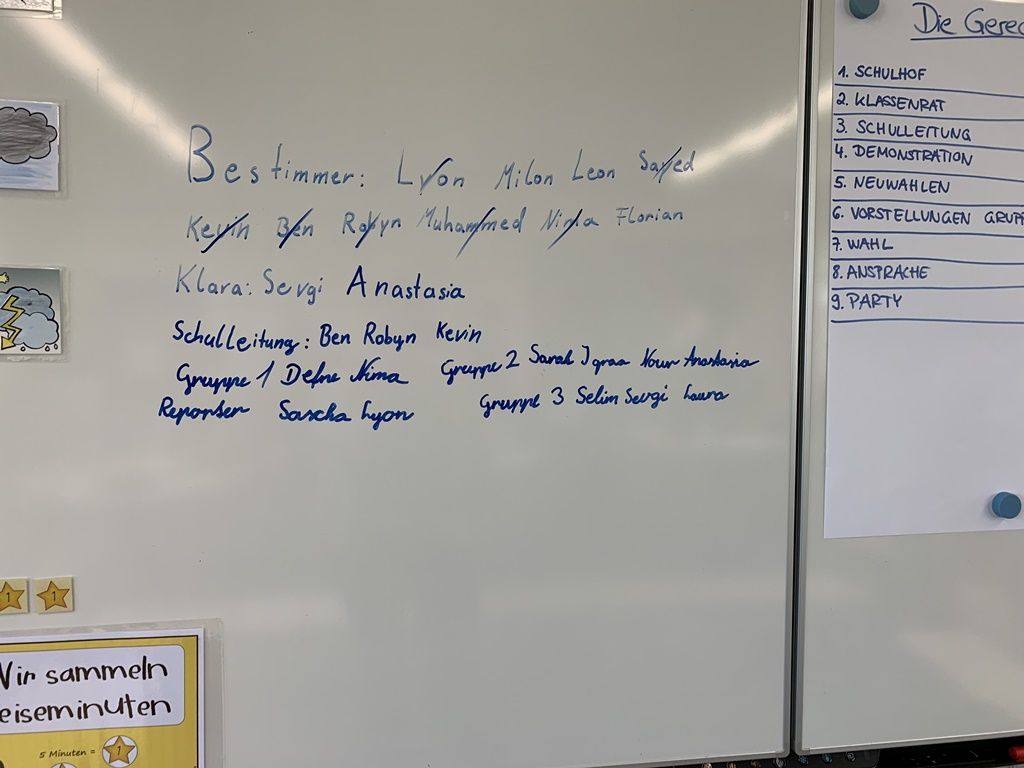 Bestimmer: Lyon Milon Leon Sayed
Kevin Ben Robyn Muhammed Nima Florian
Klara: Sevgi Anastasia
Schulleitung: Ben Robyn Kevin
Gruppe 1 Defne Nima
Gruppe 2 Sarah Iqraa Nour Anastasia
Reporter Sascha Lyon
Gruppe 3 Selim Sevgi Laura
Die Gerec
1. SCHULHOF
2. KLASSENRAT
3. SCHULLEITUNG
4. DEMONSTRATION
5. NEUWAHLEN
6. VORSTELLUNGEN GRUPP
7. WAHL
8. ANSPRACHE
9. PARTY
1 1
Wir sammeln
eiseminuten
5 Minuten = 1